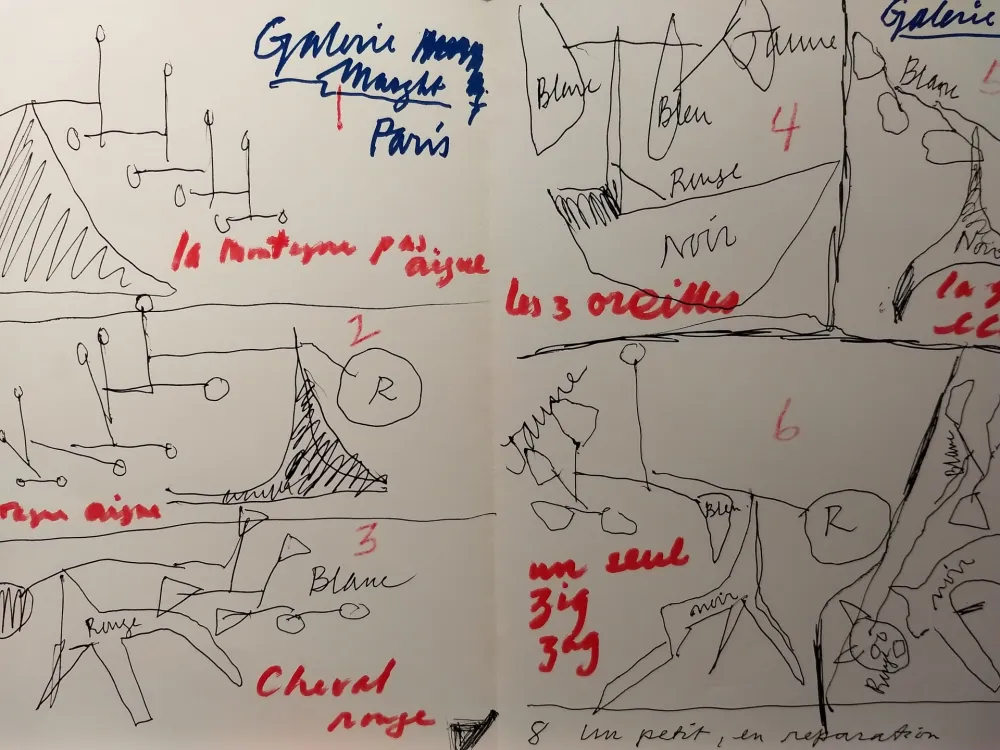 Galerie
Maeght
Paris
la montagne pas
aigue
2
R
aigue
3
Blanc
Rouge
Cheval
rouge
Blanc
Bleu
Jaune
4
Rouge
Noir
les 3 oreilles
Galerie
Blanc
5
Noir
la 3
Jaune
6
Bleu
R
un seul
zig
zag
noir
Blanc
noir
Rouge
8 Un petit, en reparation